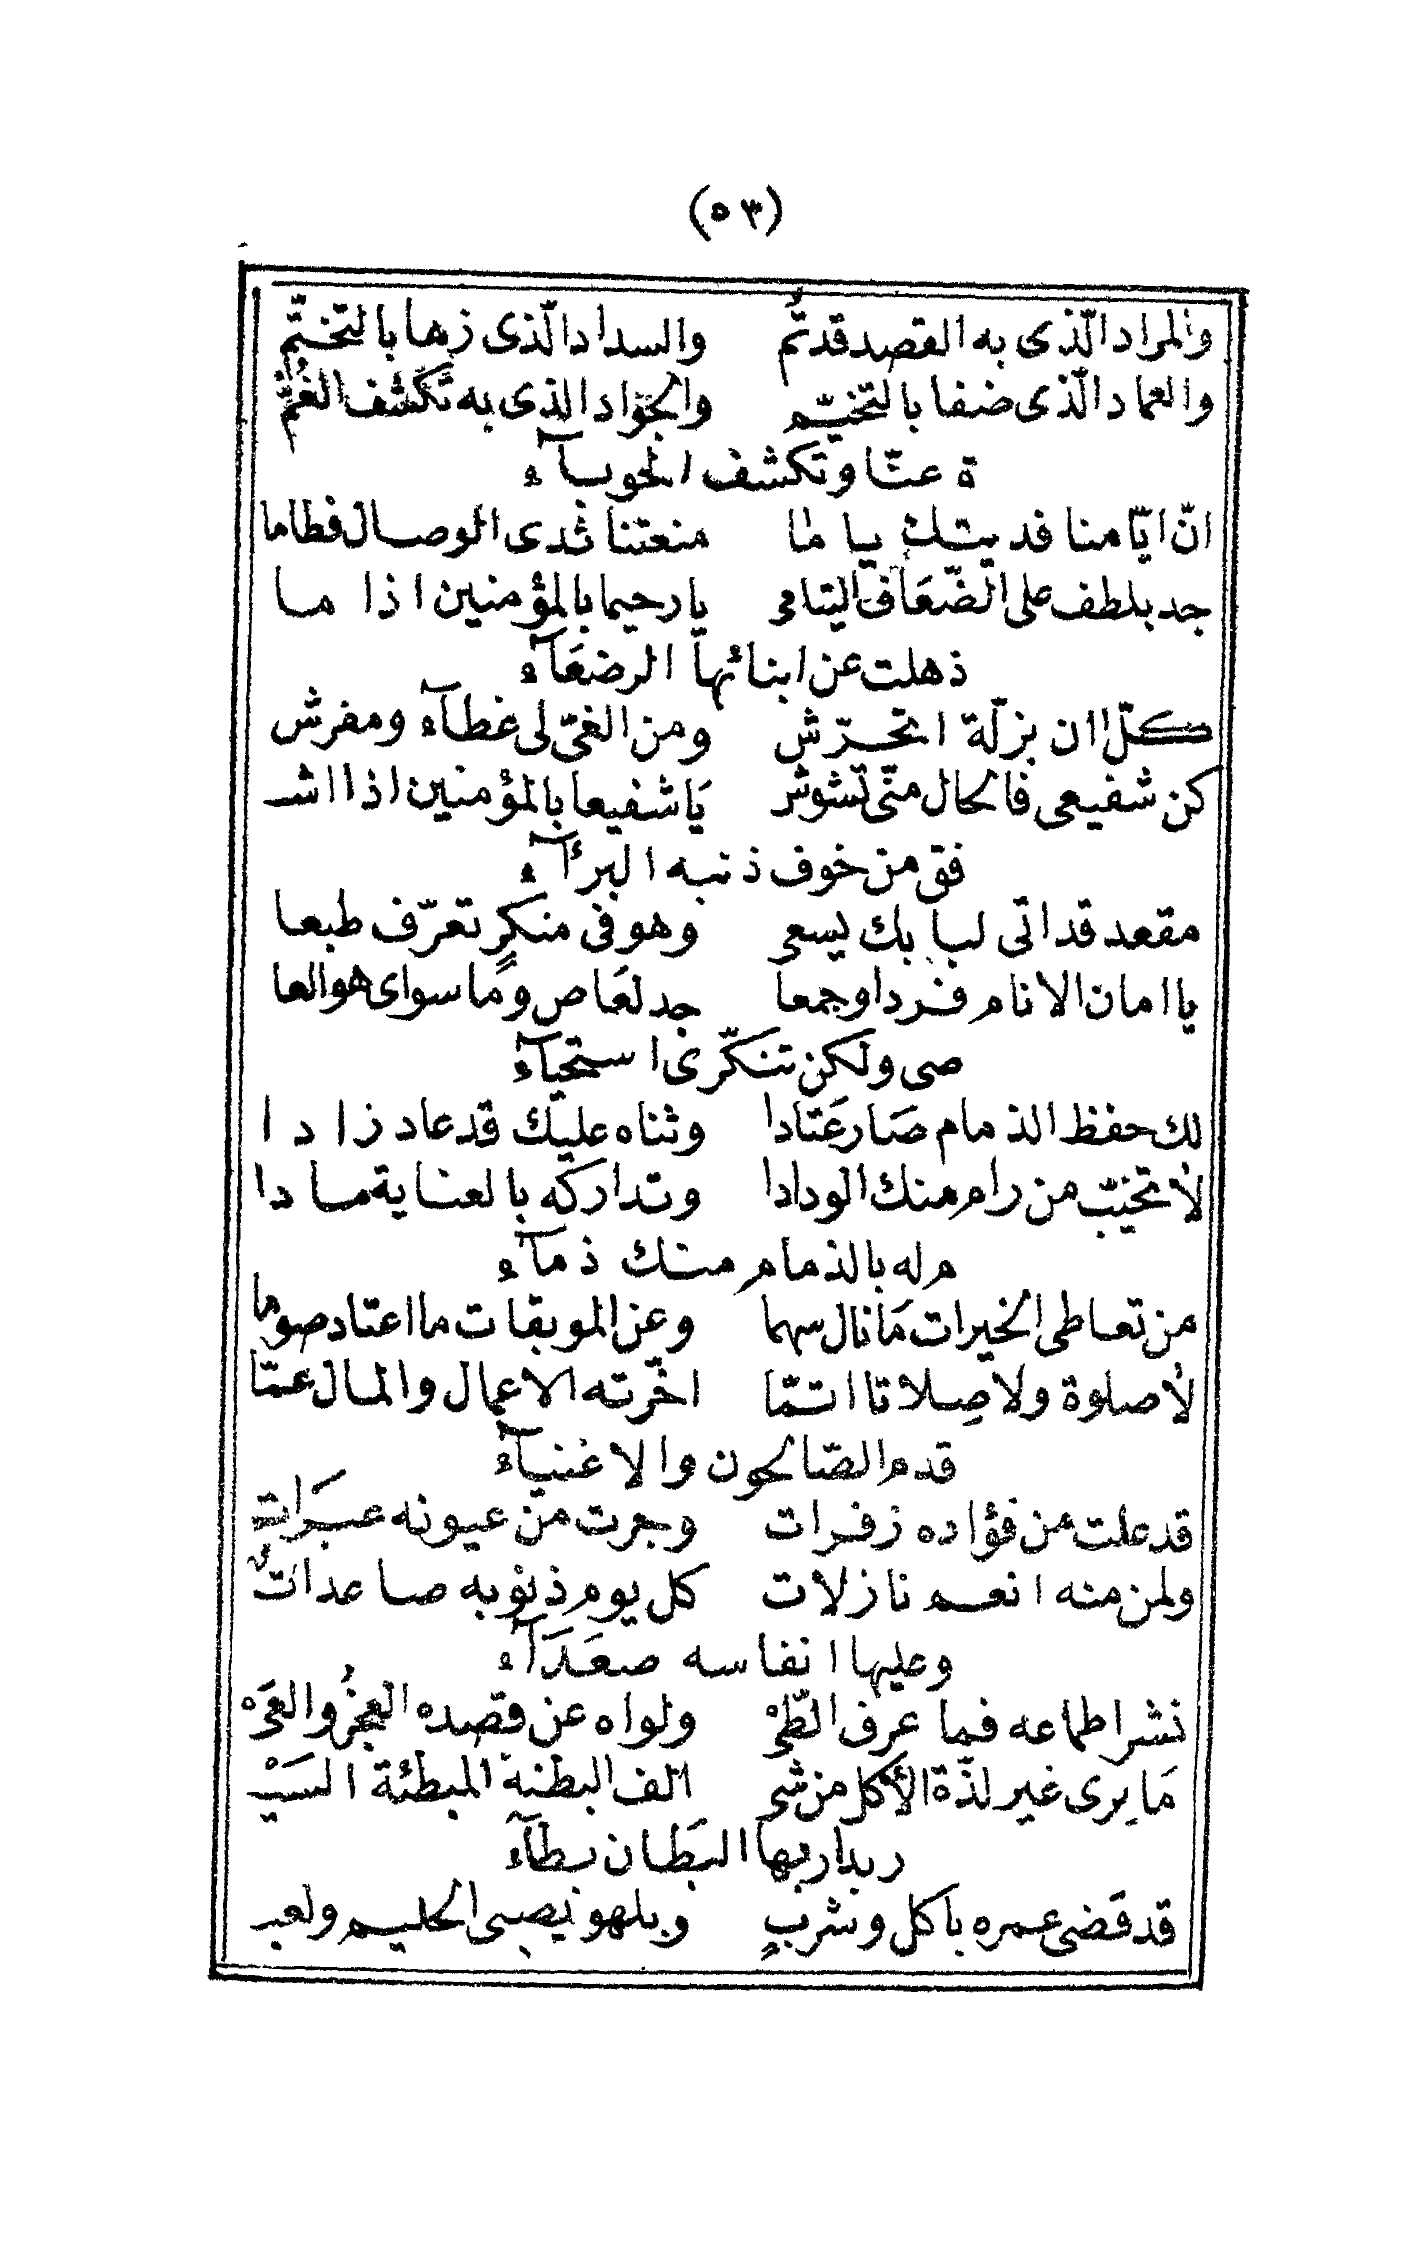 (٥٣)
والمراد الّذى به القصد قد تمّ والسداد الّذى زها بالتختّم
والعماد الّذى ضفا بالتخيّم والجوّاد الذى به تكشف الغُمّ
ة عنّا وتكشف الحوبآء
انّ ايّامنا فديتك ياما منعتنا ثدى الوصال فطاما
جد بلطف على الضّعَاف اليتامى يا رحيما بالمؤمنين اذا ما
ذهلت عن ابنائها الرضعَآء
كلّ ان بزلّة اتحرّش ومن الغىّ لى غطآء ومفرش
كن شفيعى فالحال منّى تشوش يَا شفيعا بالمؤمنين اذا اشـ
فق من خوف ذنبه البرئآء
مقعد قد اتى لبابك يسعى وهو فى منكرٍ تعرّف طبعا
يا امان الانام فردا وجمعا جد لعَاص وما سواى هو العا
صى ولكن تنكّرى استحيآء
لك حفظ الذمام صَار عَتادا وثناه عليك قد عاد زادا
لا تخيّب من رام منك الودادا وتداركه بالعناية مادا
م له بالذمام منك ذمآء
من تعاطى الخيرات مَا نال سهما وعن الموبقات ما اعتاد صوما
لا صلوة ولا صِلاتا اتمّا اخّرته الاعمال والمال عمّا
قدم الصّالحون والاغنيآء
قد علت من فؤاده زفرات وجرت من عيونه عبَرَات
ولمن منه انعم نازلات كل يوم ذنوبه صاعداتٌ
وعليها انفاسه صعَدَآء
نشر اطماعه فما عرف الطّىْ ولواه عن قصده العجزُ والعَىْ
مَا يرى غير لذّة الأكل من شى الف البطنة المبطئة السَيْـ
ر بدار بها البَطان بطآء
قد قَضى عمره باكل وشربٍ وبلهو يصبى الحليم ولعب